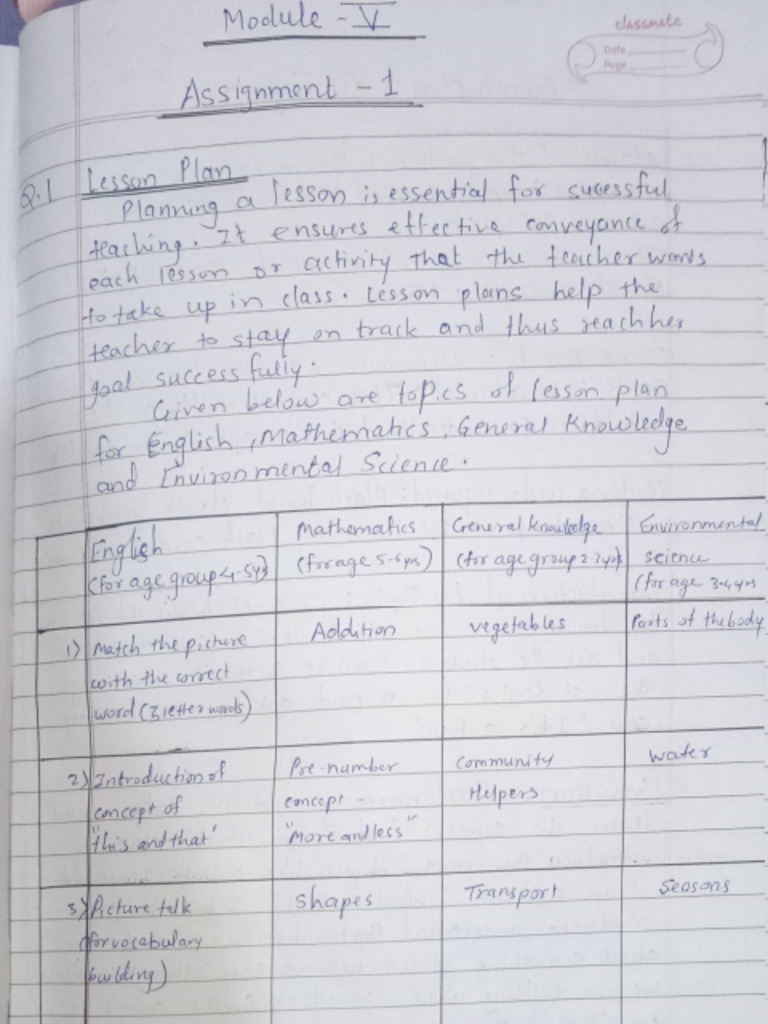 Module - V
classmate
Date
Page
Assignment - 1
Q.1 Lesson Plan
Planning a lesson is essential for sucessful
teaching. It ensures effective conveyance of
each lesson or activity that the teacher wants
to take up in class. Lesson plans help the
teacher to stay on track and thus reach her
goal successfully.
Given below are topics of lesson plan
for English, Mathematics, General Knowledge
and Environmental Science.
English
(for age group 4-5yrs)
Mathematics
(for age 5-6yrs)
General knowledge
(for age group 2-3yrs)
Environmental
science
(for age 3-4yrs
1) Match the picture
with the correct
word (3 letter words)
Addition
vegetables
Parts of the body
2) Introduction of
concept of
"this and that"
Pre-number
concept
"More and less"
Community
Helpers
water
3) Picture talk
(for vocabulary
building)
shapes
Transport
Seasons